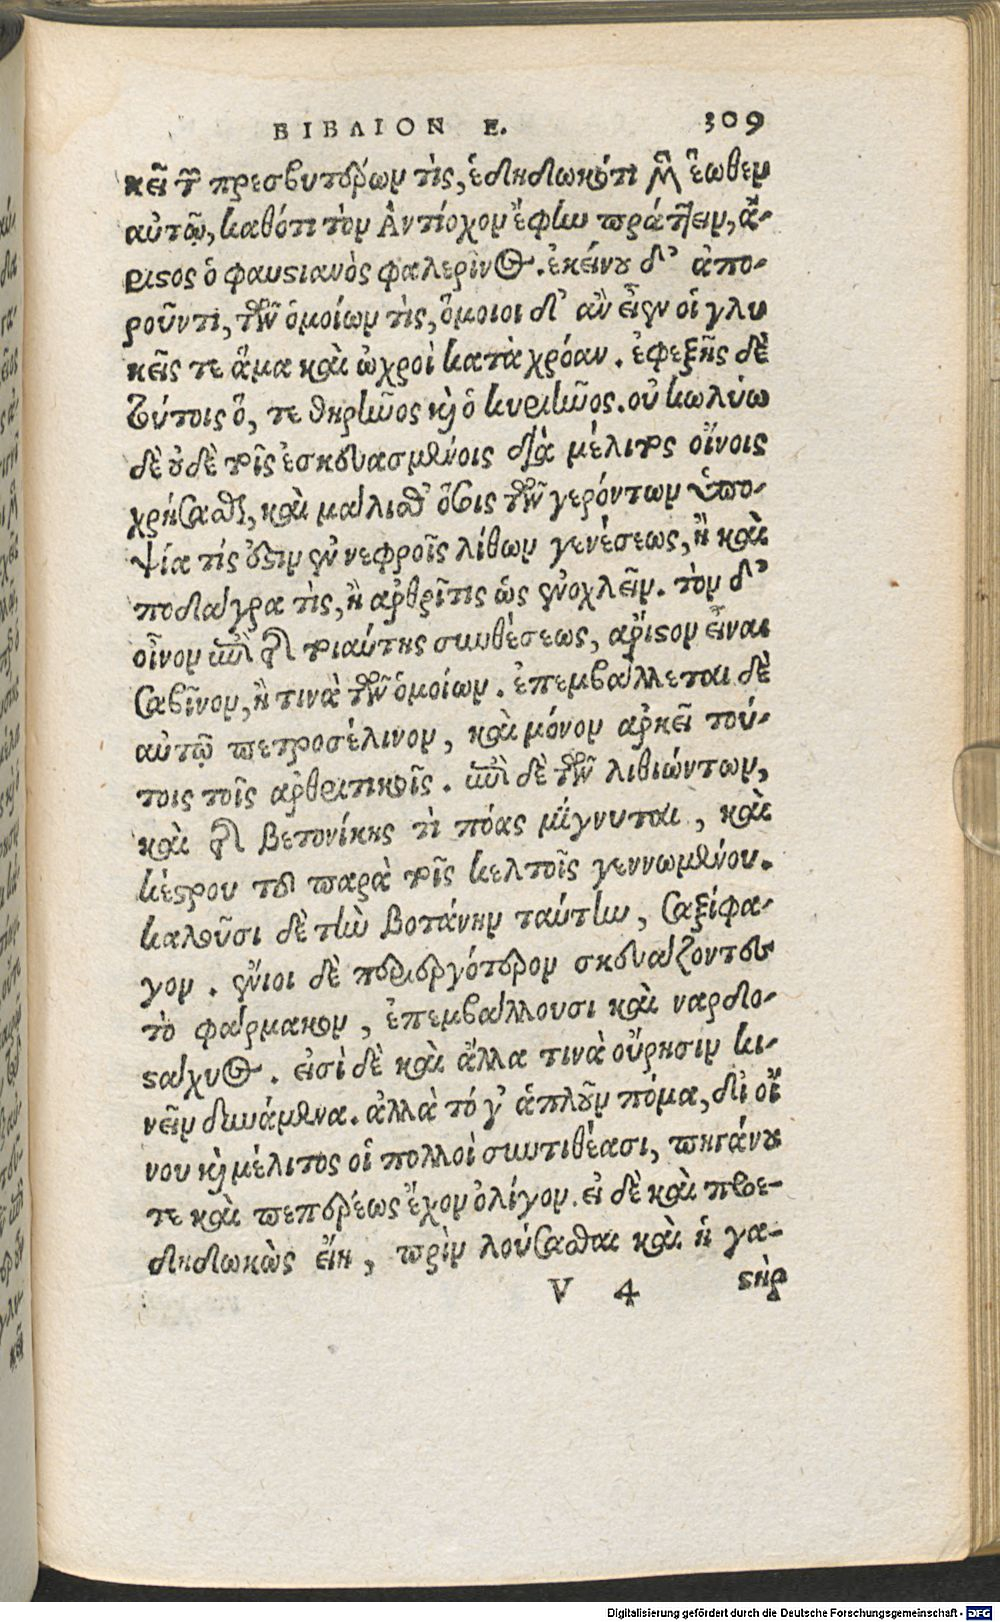 ΒΙΒΛΙΟΝ Ε. 309
κεῖ τῶν πρεσβυτέρων τὶς, ἐδηδωκότι μὲν ἕωθεν
αὐτῷ, καθότι τὸν Ἀντίοχον ἔφην πράττειν, ἄ-
ριστος ὁ φαυστιανὸς φαλερῖνος. ἐκείνου δ' ἀπο-
ροῦντι, τῶν ὁμοίων τὶς, ὅμοιοι δ' ἂν εἶεν οἱ γλυ
κεῖς τε ἅμα καὶ ὠχροὶ κατὰ χρόαν. ἐφεξῆς δὲ
τούτοις ὅ, τε θηρῖνος καὶ ὁ κυρηῖνος. οὐ κωλύω
δὲ οὐδὲ τοῖς ἐσκευασμένοις διὰ μέλιτος οἴνοις
χρῆσθαι, καὶ μάλισθ' ὅσοις τῶν γερόντων ὑπο-
ψία τίς ἐστιν ἐν νεφροῖς λίθων γενέσεως, ἢ καὶ
ποδάγρα τὶς, ἢ ἀρθρῖτις ὡς ἐνοχλεῖν. τὸν δ'
οἶνον ἐπὶ τῆς τοιαύτης συνθέσεως, ἄριστον εἶναι
Σαβῖνον, ἤ τινὰ τῶν ὁμοίων. ἐπεμβάλλεται δὲ
αὐτῷ πετροσέλινον, καὶ μόνον ἀρκεῖ τού-
τοις τοῖς ἀρθριτικοῖς. ἐπὶ δὲ τῶν λιθιώντων,
καὶ τῆς βετονίκης τὶ πόας μίγνυται, καὶ
κέστρου τοῦ παρὰ τοῖς κελτοῖς γεννωμένου.
καλοῦσι δὲ τὴν βοτάνην ταύτην, Σαξίφα-
γον. ἔνιοι δὲ περιεργότερον σκευάζοντες
τὸ φάρμακον, ἐπεμβάλλουσι καὶ ναρδο-
στάχυος. εἰσὶ δὲ καὶ ἄλλα τινὰ οὔρησιν κι-
νεῖν δυνάμενα. ἀλλὰ τό γ' ἁπλοῦν πόμα, δι' οἴ
νου καὶ μέλιτος οἱ πολλοὶ συντιθέασι, πηγάνου
τε καὶ πεπέρεως ἔχον ὀλίγον. εἰ δὲ καὶ προε-
δηδωκὼς εἴη, πρὶν λούσασθαι καὶ ἡ γα-
V 4 στὴρ
Digitalisierung gefördert durch die Deutsche Forschungsgemeinschaft - DFG